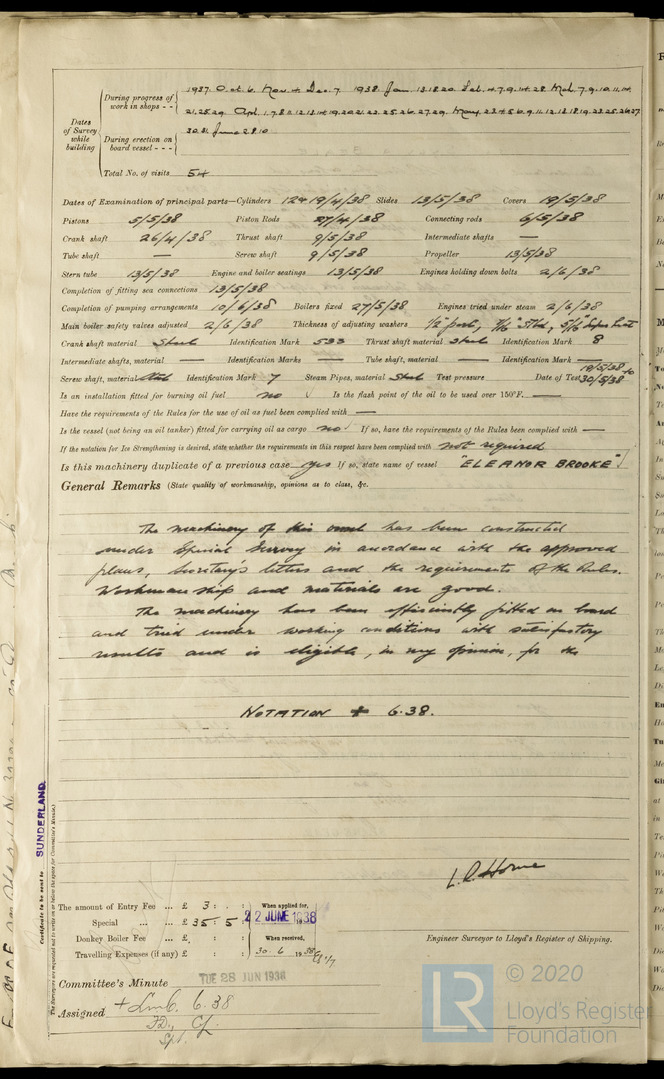 During progress of work in shops - - 1937. Oct. 6. Nov. 4. Dec. 7. 1938. Jan. 13.18.20. Feb. 4.7.9.14.28. Mch. 7.9.10.11.14.
21.25.29. Apl. 1.7.8.11.12.13.14.19.20.21.22.25.26.27.29. May. 2.3.4.5.6.9.11.12.13.18.19.23.25.26.27.
Dates of Survey while building
During erection on board vessel - - - 30.31. June 2.8.10.
Total No. of visits 54
Dates of Examination of principal parts—Cylinders 19/4/38 Slides 13/5/38 Covers 19/5/38
Pistons 5/5/38 Piston Rods 27/4/38 Connecting rods 6/5/38
Crank shaft 26/4/38 Thrust shaft 9/5/38 Intermediate shafts —
Tube shaft — Screw shaft 9/5/38 Propeller 13/5/38
Stern tube 13/5/38 Engine and boiler seatings 13/5/38 Engines holding down bolts 2/6/38
Completion of fitting sea connections 13/5/38
Completion of pumping arrangements 10/6/38 Boilers fixed 27/5/38 Engines tried under steam 2/6/38
Main boiler safety valves adjusted 2/6/38 Thickness of adjusting washers 1/2" port, 7/16" Stbd, 5/16"
Crank shaft material Steel Identification Mark 533 Thrust shaft material Steel Identification Mark 8
Intermediate shafts, material — Identification Marks — Tube shaft, material — Identification Mark —
Screw shaft, material Steel Identification Mark 7 Steam Pipes, material Steel Test pressure Date of Test 19/5/38 to 30/5/38
Is an installation fitted for burning oil fuel no Is the flash point of the oil to be used over 150°F. —
Have the requirements of the Rules for the use of oil as fuel been complied with —
Is the vessel (not being an oil tanker) fitted for carrying oil as cargo no If so, have the requirements of the Rules been complied with —
If the notation for Ice Strengthening is desired, state whether the requirements in this respect have been complied with not required
Is this machinery duplicate of a previous case yes If so, state name of vessel "ELEANOR BROOKE"
General Remarks (State quality of workmanship, opinions as to class, &c.
The machinery of this vessel has been constructed
under Special Survey in accordance with the approved
plans, Secretary's letters and the requirements of the Rules.
Workmanship and materials are good.
The machinery has been efficiently fitted on board
and tried under working conditions with satisfactory
results and is eligible, in my opinion, for the
NOTATION + 6.38.
SUNDERLAND.
Certificate to be sent to
(The Surveyors are requested not to write on or below the space for Committee's Minute.)
L. C. Horne
The amount of Entry Fee ... £ 3 : : When applied for,
Special ... ... £ 35 : 5 : 22 JUNE 1938
Donkey Boiler Fee ... £ : : When received,
Travelling Expenses (if any) £ : : 30.6 1938
Engineer Surveyor to Lloyd's Register of Shipping.
Committee's Minute TUE 28 JUN 1938
Assigned + LMC. 6.38
FD., CL.
Spt.
LR © 2020
Lloyd's Register
Foundation